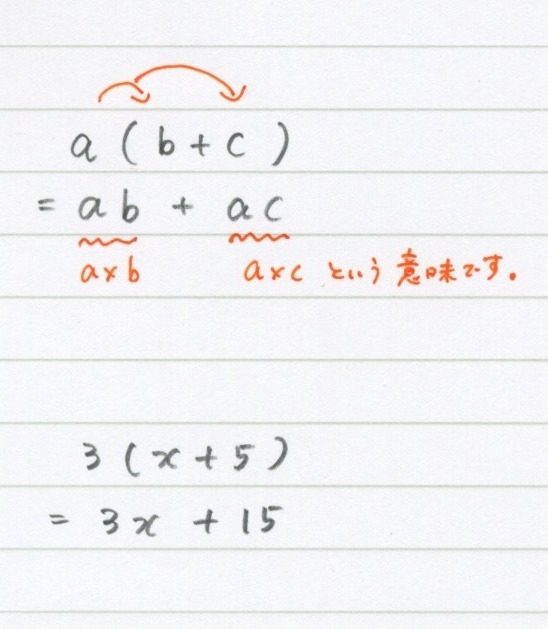 a(b+c)
= ab + ac
a×b a×c という意味です。
3(x+5)
= 3x + 15